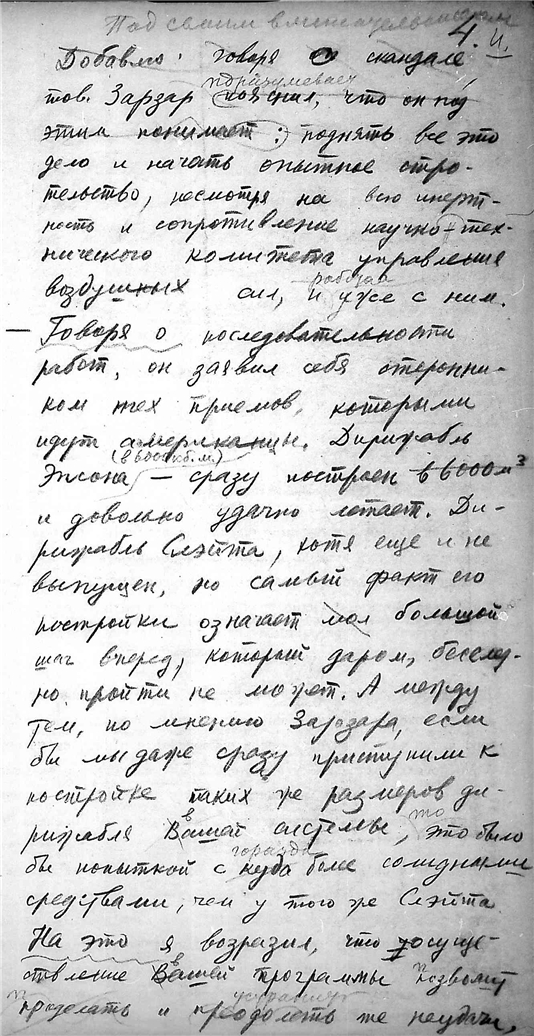 Под своим
4.
Добавлю: говоря о скандале,
подразумевает
тов. Зарзар пояснил, что он под
этим понимает: поднять все это
дело и начать опытное стро-
тельство, несмотря на всю инерт-
ность и сопротивление научно-тех-
нического комитета управления
работая
воздушных сил, и уже с ним.
— Говоря о последовательности
работ, он заявил себя сторонни-
ком тех приемов, которыми
идут американцы. Дирижабль
(в 6000 кб. м.)
Эпсона — сразу построен в 6000 м³
и довольно удачно летает. Ди-
рижабль Слэйта, хотя еще и не
выпущен, но самый факт его
постройки означает мол большой
шаг вперед, который даром, бесслед-
но пройти не может. А между
тем, по мнению Зарзара, если
бы мы даже сразу приступили к
постройке таких же размеров ди-
в то
рижабля Вашей системы, это было
гораздо
бы попыткой с куда более солидными
средствами, чем у того же Слэйта
На это я возразил, что осуще-
в п
ствление Вашей программы позволит
устранить
проделать и преодолеть те же неудачи,